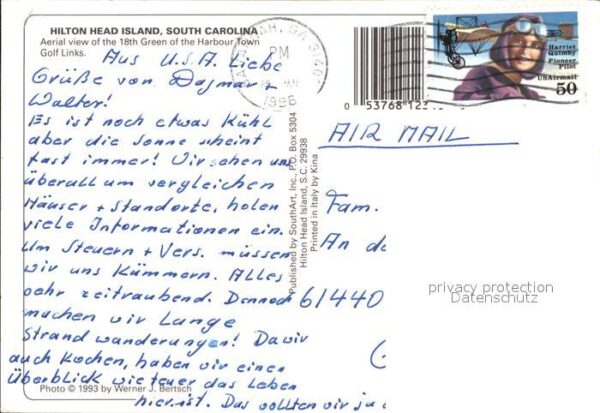 HILTON HEAD ISLAND, SOUTH CAROLINA
Aerial view of the 18th Green of the Harbour Town
Golf Links.
Aus U.S.A. Liebe
Grüße von Dagmar +
Walter!
Es ist noch etwas Kühl
aber die Sonne scheint
fast immer! Wir sehen uns
überall um vergleichen
Häuser + Standorte, holen
viele Informationen ein.
Um Steuern + Vers. müssen
wir uns Kümmern. Alles
sehr zeitraubend. Dennoch
machen wir Lange
Strandwanderungen! Da wir
auch Kochen, haben wir einen
Überblick wie teuer das Leben
hier ist. Das wollten wir ja
Photo © 1993 by Werner J. Bertsch
Published by SouthArt, Inc., P.O. Box 5304
Hilton Head Island, S.C. 29938
Printed in Italy by Kina
GA
PM
1996
0 53768 123
Harriet
Quimby
Pioneer
Pilot
USAirmail
50
AIR MAIL
Fam.
An de
61440
privacy protection
Datenschutz